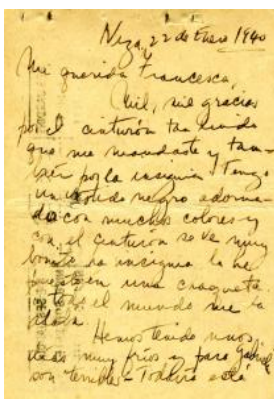 Niza, 22 de Enero 1940
Mi querida Francesca,
Mil, mil gracias
por el cinturón tan lindo
que me mandaste y tam-
bién por la insignia. Tengo
un vestido negro adorna-
do con muchos colores y
con el cinturón se ve muy
bonito. La insignia la he
puesto en una chaqueta
y todo el mundo me la
Hemos tenido unos
días muy fríos y para Gabriel
son terribles - Todavía está